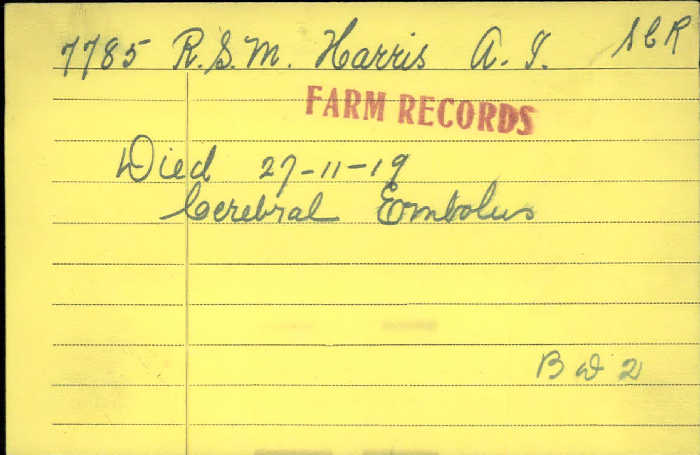 7785 R.S.M. Harris A. J. SCR
FARM RECORDS
Died 27-11-19
Cerebral Embolus
B D 2